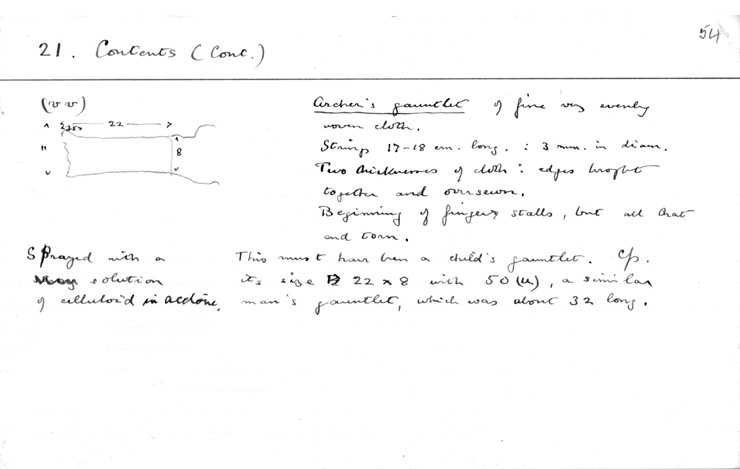 54
21. Contents (Cont.)
(vv)
Archer's gauntlet of fine very evenly
woven cloth.
Strings 17-18 cm. long. : 3 mm. in diam.
Two thicknesses of cloth : edges brought
together and oversewn.
Beginning of fingers stalls, but all that
and torn.
22
3.5
11
8
Sprayed with a
solution
of celluloid in acetone.
This must have been a child's gauntlet. Cp.
its size 22 x 8 with 50 (u), a similar
man's gauntlet, which was about 32 long.